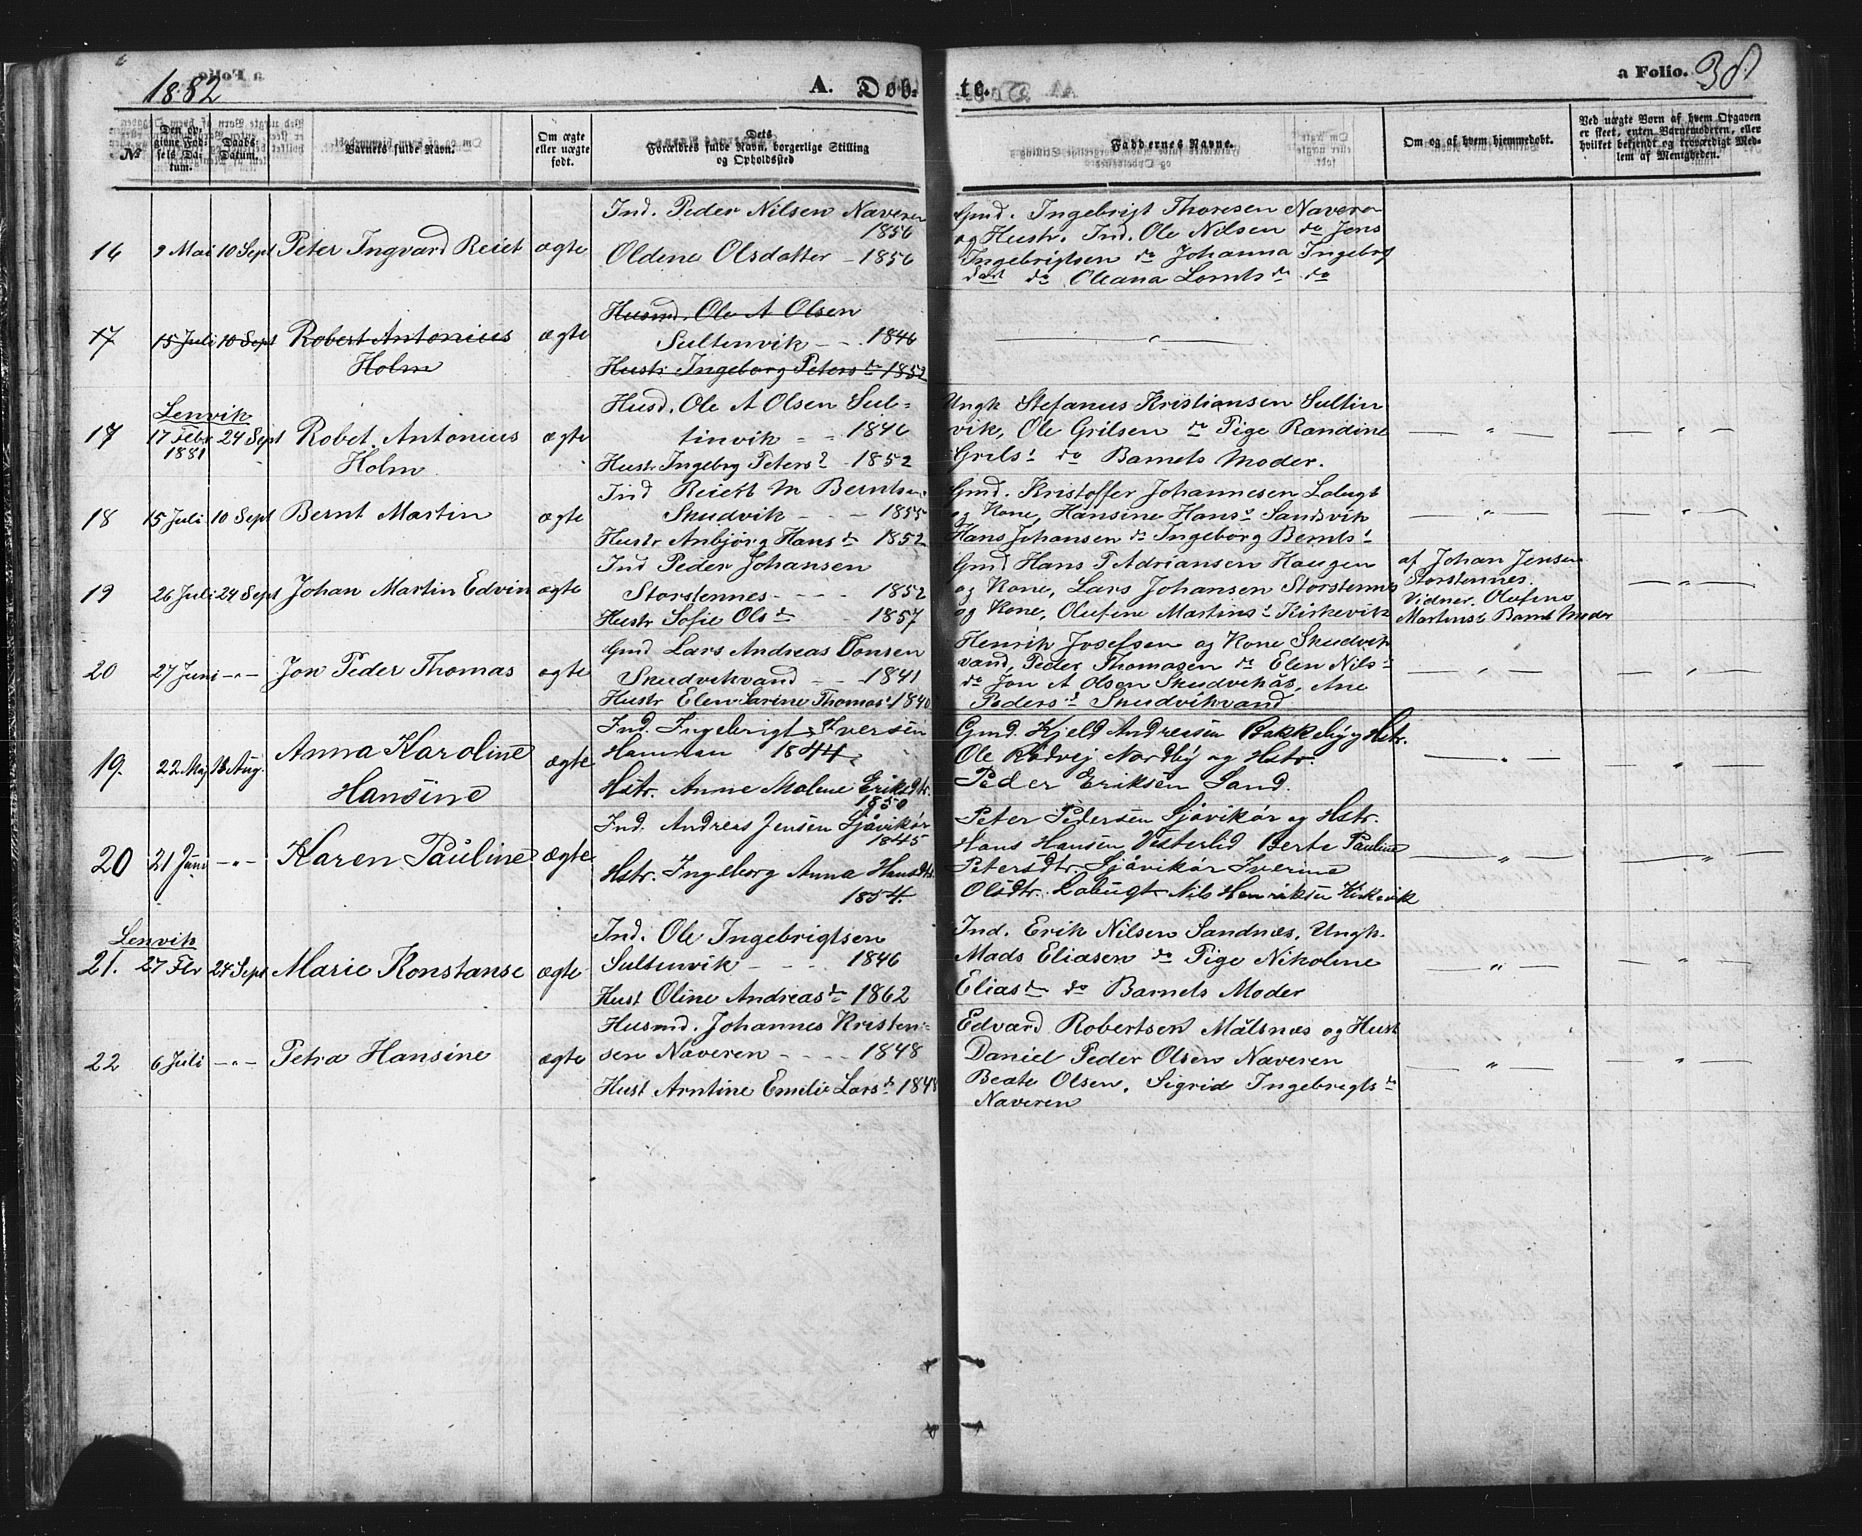 1882
A. Døb-
te.
a Folio. 38.
№
Den op-
givne Fød-
sels Da-
tum.
Daabs
Datum.
Barnets fulde Navn.
Om ægte
eller uægte
født.
Dets
Forældres fulde Navn, borgerlige Stilling
og Opholdssted
Faddernes Navne.
Om og af hvem hjemmedøbt.
Ved uægte Børn af hvem Opgaven
er skeet, enten Barnemoderen, eller
hvilket bekjendt og troværdigt Med-
lem af Menigheden.
16 9 Mai 10 Sept Peter Ingvard Reiet ægte
Ind. Peder Nilsen Naveren
1856
Oldene Olsdatter - 1856
Gmd. Ingebrigt Thoresen Naveren
og Hustr. Ind. Ole Nilsen do Jens
Ingebrigtsen do Johanna Ingebrg
dat do Oleana Lornts d. do
17 15 Juli 10 Sept Robert Antonius
Holm
ægte
Husmd. Ole A Olsen
Sultenvik - - . 1846
Hustr Ingeborg Peters d. 1852
— " —
Lenvik
17 17 Febr 24 Sept Robet. Antonius
1881
Holm
ægte
Husd. Ole A Olsen Sul-
tinvik - - 1846
Hustr Ingebrg Peters d 1852
Ungk Stefanus Kristiansen Sultin
vik, Ole Grilsen do Pige Randine
Grils d do Barnets Moder.
— " — — " —
18 15 Juli 10 Sept Bernt Martin ægte
Ind Reiett M Berntsen
Skudvik - - - 1855
Hustr Anbjørg Hans d. 1852
Gmd. Kristoffer Johannesen Labugt
og Kone, Hansine Hans d Sandsvik
Hans Johansen do Ingeborg Bernts d
— " — — " —
19 26 Juli 24 Sept Johan Martin Edvin ægte
Ind Peder Johansen
Storstennes - - - - 1852
Hustr Sofie Ols d. - - 1857
Gmd Hans P Adriansen Haugen
og Kone, Lars Johansen Storstennes
og Kone, Olufine Martins d Kirkevik
af Johan Jensen
Storstennes.
Vidner. Olufine
Martinsd Barnets Moder
— " —
20 27 Juni -"- Jon Peder Thomas ægte
Gmd Lars Andreas Tonsen
Skudvikvand - - 1841
Hustr Elen Sarine Thomas d 1840
Henrik Josefsen og Kone Skudvik
vand, Peder Thomasen do Elen Nils d
do Jon A Olsen Skudvikås, Ane
Peders d Skudvikvand
— " — — " —
19. 22 Maj 13 Aug. Anna Karoline
Hansine
ægte
Ind. Ingebrigt Iversen
Hamnan 1844.
Hstr. Anne Malene Eriksdtr.
1850
Gmd. Kjeld Andreasen Bakkeby og Hstr.
Ole Rødvej Nordby og Hstr.
Peder Eriksen Sand.
— " — — " —
20 21 Juni -"- Karen Pauline ægte
Ind. Andreas Jensen Sjåvikør
1845
Hstr. Ingeborg Anna Hansdtr.
1854.
Peter Pedersen Sjåvikør og Hstr.
Hans Hansen Vesterlid Berte Pauline
Petersdtr. Sjåvikør Iverine
Olsdtr. Labugt Nils Henriksen Kirkevik
— " — — " —
Lenvik
21. 27 Fbr 24 Sept Marie Konstanse ægte
Ind. Ole Ingebrigtsen
Sultenvik - - - 1846
Hust Oline Andreas d. 1862
Ind. Erik Nilsen Sandnæs, Ungk.
Mads Eliasen do Pige Nikoline
Elias d. do Barnets Moder
— " — — " —
22 6 Juli -"- Petra Hansine ægte
Husmd. Johannes Kristen-
sen Naveren - - - - 1848
Hust Arntine Emelie Lars d. 1848
Edvard Robertsen Målsnæs og Hust
Daniel Peder Olsen Naveren
Beate Olsen, Sigrid Ingebrigts d.
Naveren
— " — — " —